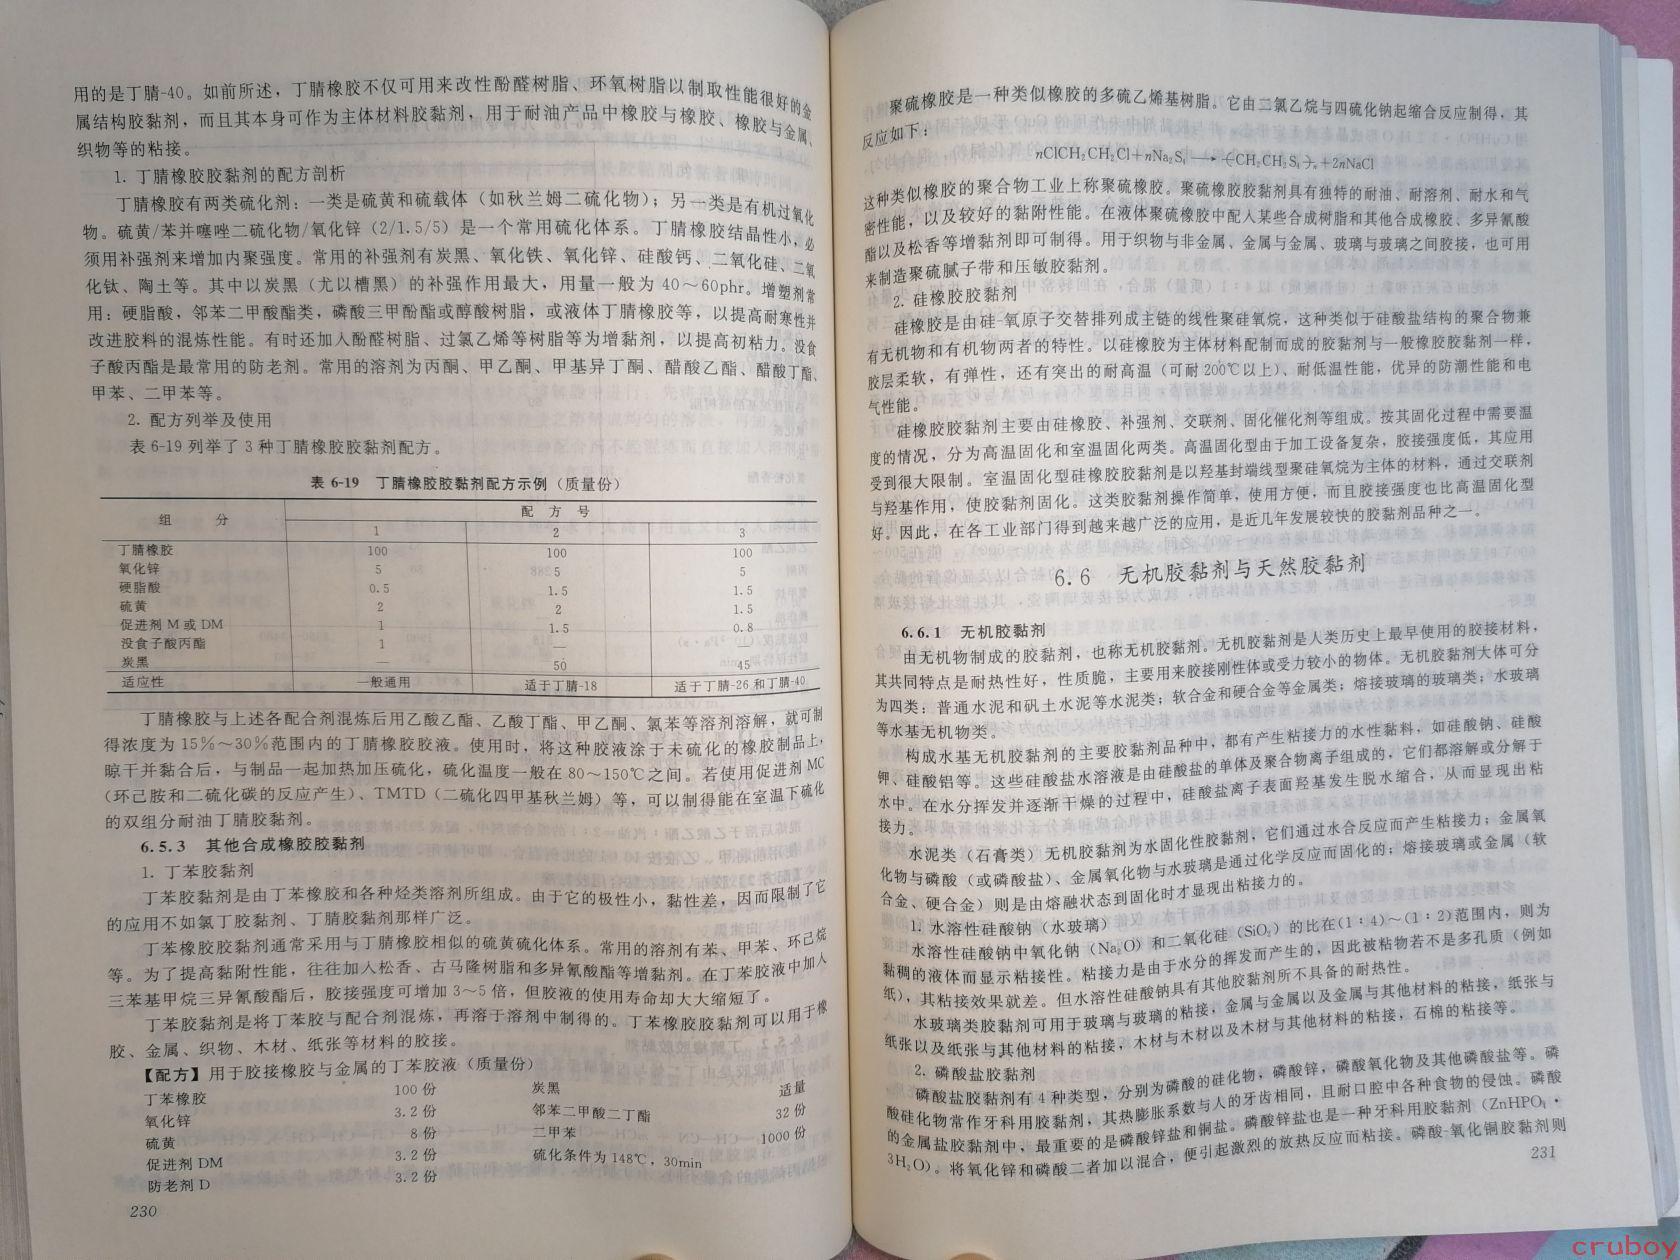 用的是丁腈-40。如前所述，丁腈橡胶不仅可用来改性酚醛树脂、环氧树脂以制取性能很好的金
属结构胶黏剂，而且其本身可作为主体材料胶黏剂，用于耐油产品中橡胶与橡胶、橡胶与金属、
织物等的粘接。
1. 丁腈橡胶胶黏剂的配方剖析
丁腈橡胶有两类硫化剂：一类是硫黄和硫载体（如秋兰姆二硫化物）；另一类是有机过氧化
物。硫黄/苯并噻唑二硫化物/氧化锌（2/1.5/5）是一个常用硫化体系。丁腈橡胶结晶性小，必
须用补强剂来增加内聚强度。常用的补强剂有炭黑、氧化铁、氧化锌、硅酸钙、二氧化硅、二氧
化钛、陶土等。其中以炭黑（尤以槽黑）的补强作用最大，用量一般为 40～60phr。增塑剂常
用：硬脂酸，邻苯二甲酸酯类，磷酸三甲酚酯或醇酸树脂，或液体丁腈橡胶等，以提高耐寒性并
改进胶料的混炼性能。有时还加入酚醛树脂、过氯乙烯等树脂等为增黏剂，以提高初粘力。没食
子酸丙酯是最常用的防老剂。常用的溶剂为丙酮、甲乙酮、甲基异丁酮、醋酸乙酯、醋酸丁酯、
甲苯、二甲苯等。
2. 配方列举及使用
表 6-19 列举了 3 种丁腈橡胶胶黏剂配方。
表 6-19 丁腈橡胶胶黏剂配方示例（质量份）
组 分 配 方 号
1 2 3
丁腈橡胶 100 100 100
氧化锌 5 5 5
硬脂酸 0.5 1.5 1.5
硫黄 2 2 1.5
促进剂 M 或 DM 1 1.5 0.8
没食子酸丙酯 1 — —
炭黑 — 50 45
适应性 一般通用 适于丁腈-18 适于丁腈-26 和丁腈-40
丁腈橡胶与上述各配合剂混炼后用乙酸乙酯、乙酸丁酯、甲乙酮、氯苯等溶剂溶解，就可制
得浓度为 15%～30%范围内的丁腈橡胶胶液。使用时，将这种胶液涂于未硫化的橡胶制品上，
晾干并黏合后，与制品一起加热加压硫化，硫化温度一般在 80～150℃之间。若使用促进剂 MC
（环己胺和二硫化碳的反应产生）、TMTD（二硫化四甲基秋兰姆）等，可以制得能在室温下硫化
的双组分耐油丁腈胶黏剂。
6.5.3 其他合成橡胶胶黏剂
1. 丁苯胶黏剂
丁苯胶黏剂是由丁苯橡胶和各种烃类溶剂所组成。由于它的极性小，黏性差，因而限制了它
的应用不如氯丁胶黏剂、丁腈胶黏剂那样广泛。
丁苯橡胶胶黏剂通常采用与丁腈橡胶相似的硫黄硫化体系。常用的溶剂有苯、甲苯、环己烷
等。为了提高黏附性能，往往加入松香、古马隆树脂和多异氰酸酯等增黏剂。在丁苯胶液中加入
三苯基甲烷三异氰酸酯后，胶接强度可增加 3～5 倍，但胶液的使用寿命却大大缩短了。
丁苯胶黏剂是将丁苯胶与配合剂混炼，再溶于溶剂中制得的。丁苯橡胶胶黏剂可以用于橡
胶、金属、织物、木材、纸张等材料的胶接。
【配方】用于胶接橡胶与金属的丁苯胶液（质量份）
丁苯橡胶 100 份 炭黑 适量
氧化锌 3.2 份 邻苯二甲酸二丁酯 32 份
硫黄 8 份 二甲苯 1000 份
促进剂 DM 3.2 份 硫化条件为 148℃，30min
防老剂 D 3.2 份
230
聚硫橡胶是一种类似橡胶的多硫乙烯基树脂。它由二氯乙烷与四硫化钠起缩合反应制得，其
反应如下：
nClCH₂CH₂Cl+nNa₂S₄ ⟶ ⟮CH₂CH₂S₄⟯ₙ+2nNaCl
这种类似橡胶的聚合物工业上称聚硫橡胶。聚硫橡胶胶黏剂具有独特的耐油、耐溶剂、耐水和气
密性能，以及较好的黏附性能。在液体聚硫橡胶中配入某些合成树脂和其他合成橡胶、多异氰酸
酯以及松香等增黏剂即可制得。用于织物与非金属、金属与金属、玻璃与玻璃之间胶接，也可用
来制造聚硫腻子带和压敏胶黏剂。
2. 硅橡胶胶黏剂
硅橡胶是由硅-氧原子交替排列成主链的线性聚硅氧烷，这种类似于硅酸盐结构的聚合物兼
有无机物和有机物两者的特性。以硅橡胶为主体材料配制而成的胶黏剂与一般橡胶胶黏剂一样，
胶层柔软，有弹性，还有突出的耐高温（可耐 200℃以上）、耐低温性能，优异的防潮性能和电
气性能。
硅橡胶胶黏剂主要由硅橡胶、补强剂、交联剂、固化催化剂等组成。按其固化过程中需要温
度的情况，分为高温固化和室温固化两类。高温固化型由于加工设备复杂，胶接强度低，其应用
受到很大限制。室温固化型硅橡胶胶黏剂是以羟基封端线型聚硅氧烷为主体的材料，通过交联剂
与羟基作用，使胶黏剂固化。这类胶黏剂操作简单，使用方便，而且胶接强度也比高温固化型
好。因此，在各工业部门得到越来越广泛的应用，是近几年发展较快的胶黏剂品种之一。
6.6 无机胶黏剂与天然胶黏剂
6.6.1 无机胶黏剂
由无机物制成的胶黏剂，也称无机胶黏剂。无机胶黏剂是人类历史上最早使用的胶接材料，
其共同特点是耐热性好，性质脆，主要用来胶接刚性体或受力较小的物体。无机胶黏剂大体可分
为四类：普通水泥和矾土水泥等水泥类；软合金和硬合金等金属类；熔接玻璃的玻璃类；水玻璃
等水基无机物类。
构成水基无机胶黏剂的主要胶黏剂品种中，都有产生粘接力的水性黏料，如硅酸钠、硅酸
钾、硅酸铝等。这些硅酸盐水溶液是由硅酸盐的单体及聚合物离子组成的，它们都溶解或分解于
水中。在水分挥发并逐渐干燥的过程中，硅酸盐离子表面羟基发生脱水缩合，从而显现出粘
接力。
水泥类（石膏类）无机胶黏剂为水固化性胶黏剂，它们通过水合反应而产生粘接力；金属氧
化物与磷酸（或磷酸盐）、金属氧化物与水玻璃是通过化学反应而固化的；熔接玻璃或金属（软
合金、硬合金）则是由熔融状态到固化时才显现出粘接力的。
1. 水溶性硅酸钠（水玻璃）
水溶性硅酸钠中氧化钠（Na₂O）和二氧化硅（SiO₂）的比在(1∶4)～(1∶2)范围内，则为
黏稠的液体而显示粘接性。粘接力是由于水分的挥发而产生的，因此被粘物若不是多孔质（例如
纸），其粘接效果就差。但水溶性硅酸钠具有其他胶黏剂所不具备的耐热性。
水玻璃类胶黏剂可用于玻璃与玻璃的粘接，金属与金属以及金属与其他材料的粘接，纸张与
纸张以及纸张与其他材料的粘接，木材与木材以及木材与其他材料的粘接，石棉的粘接等。
2. 磷酸盐胶黏剂
磷酸盐胶黏剂有 4 种类型，分别为磷酸的硅化物，磷酸锌，磷酸氧化物及其他磷酸盐等。磷
酸硅化物常作牙科用胶黏剂，其热膨胀系数与人的牙齿相同，且耐口腔中各种食物的侵蚀。磷酸
的金属盐胶黏剂中，最重要的是磷酸锌盐和铜盐。磷酸锌盐也是一种牙科用胶黏剂（ZnHPO₄·
3H₂O）。将氧化锌和磷酸二者加以混合，便引起激烈的放热反应而粘接。磷酸-氧化铜胶黏剂则
231
cruboy